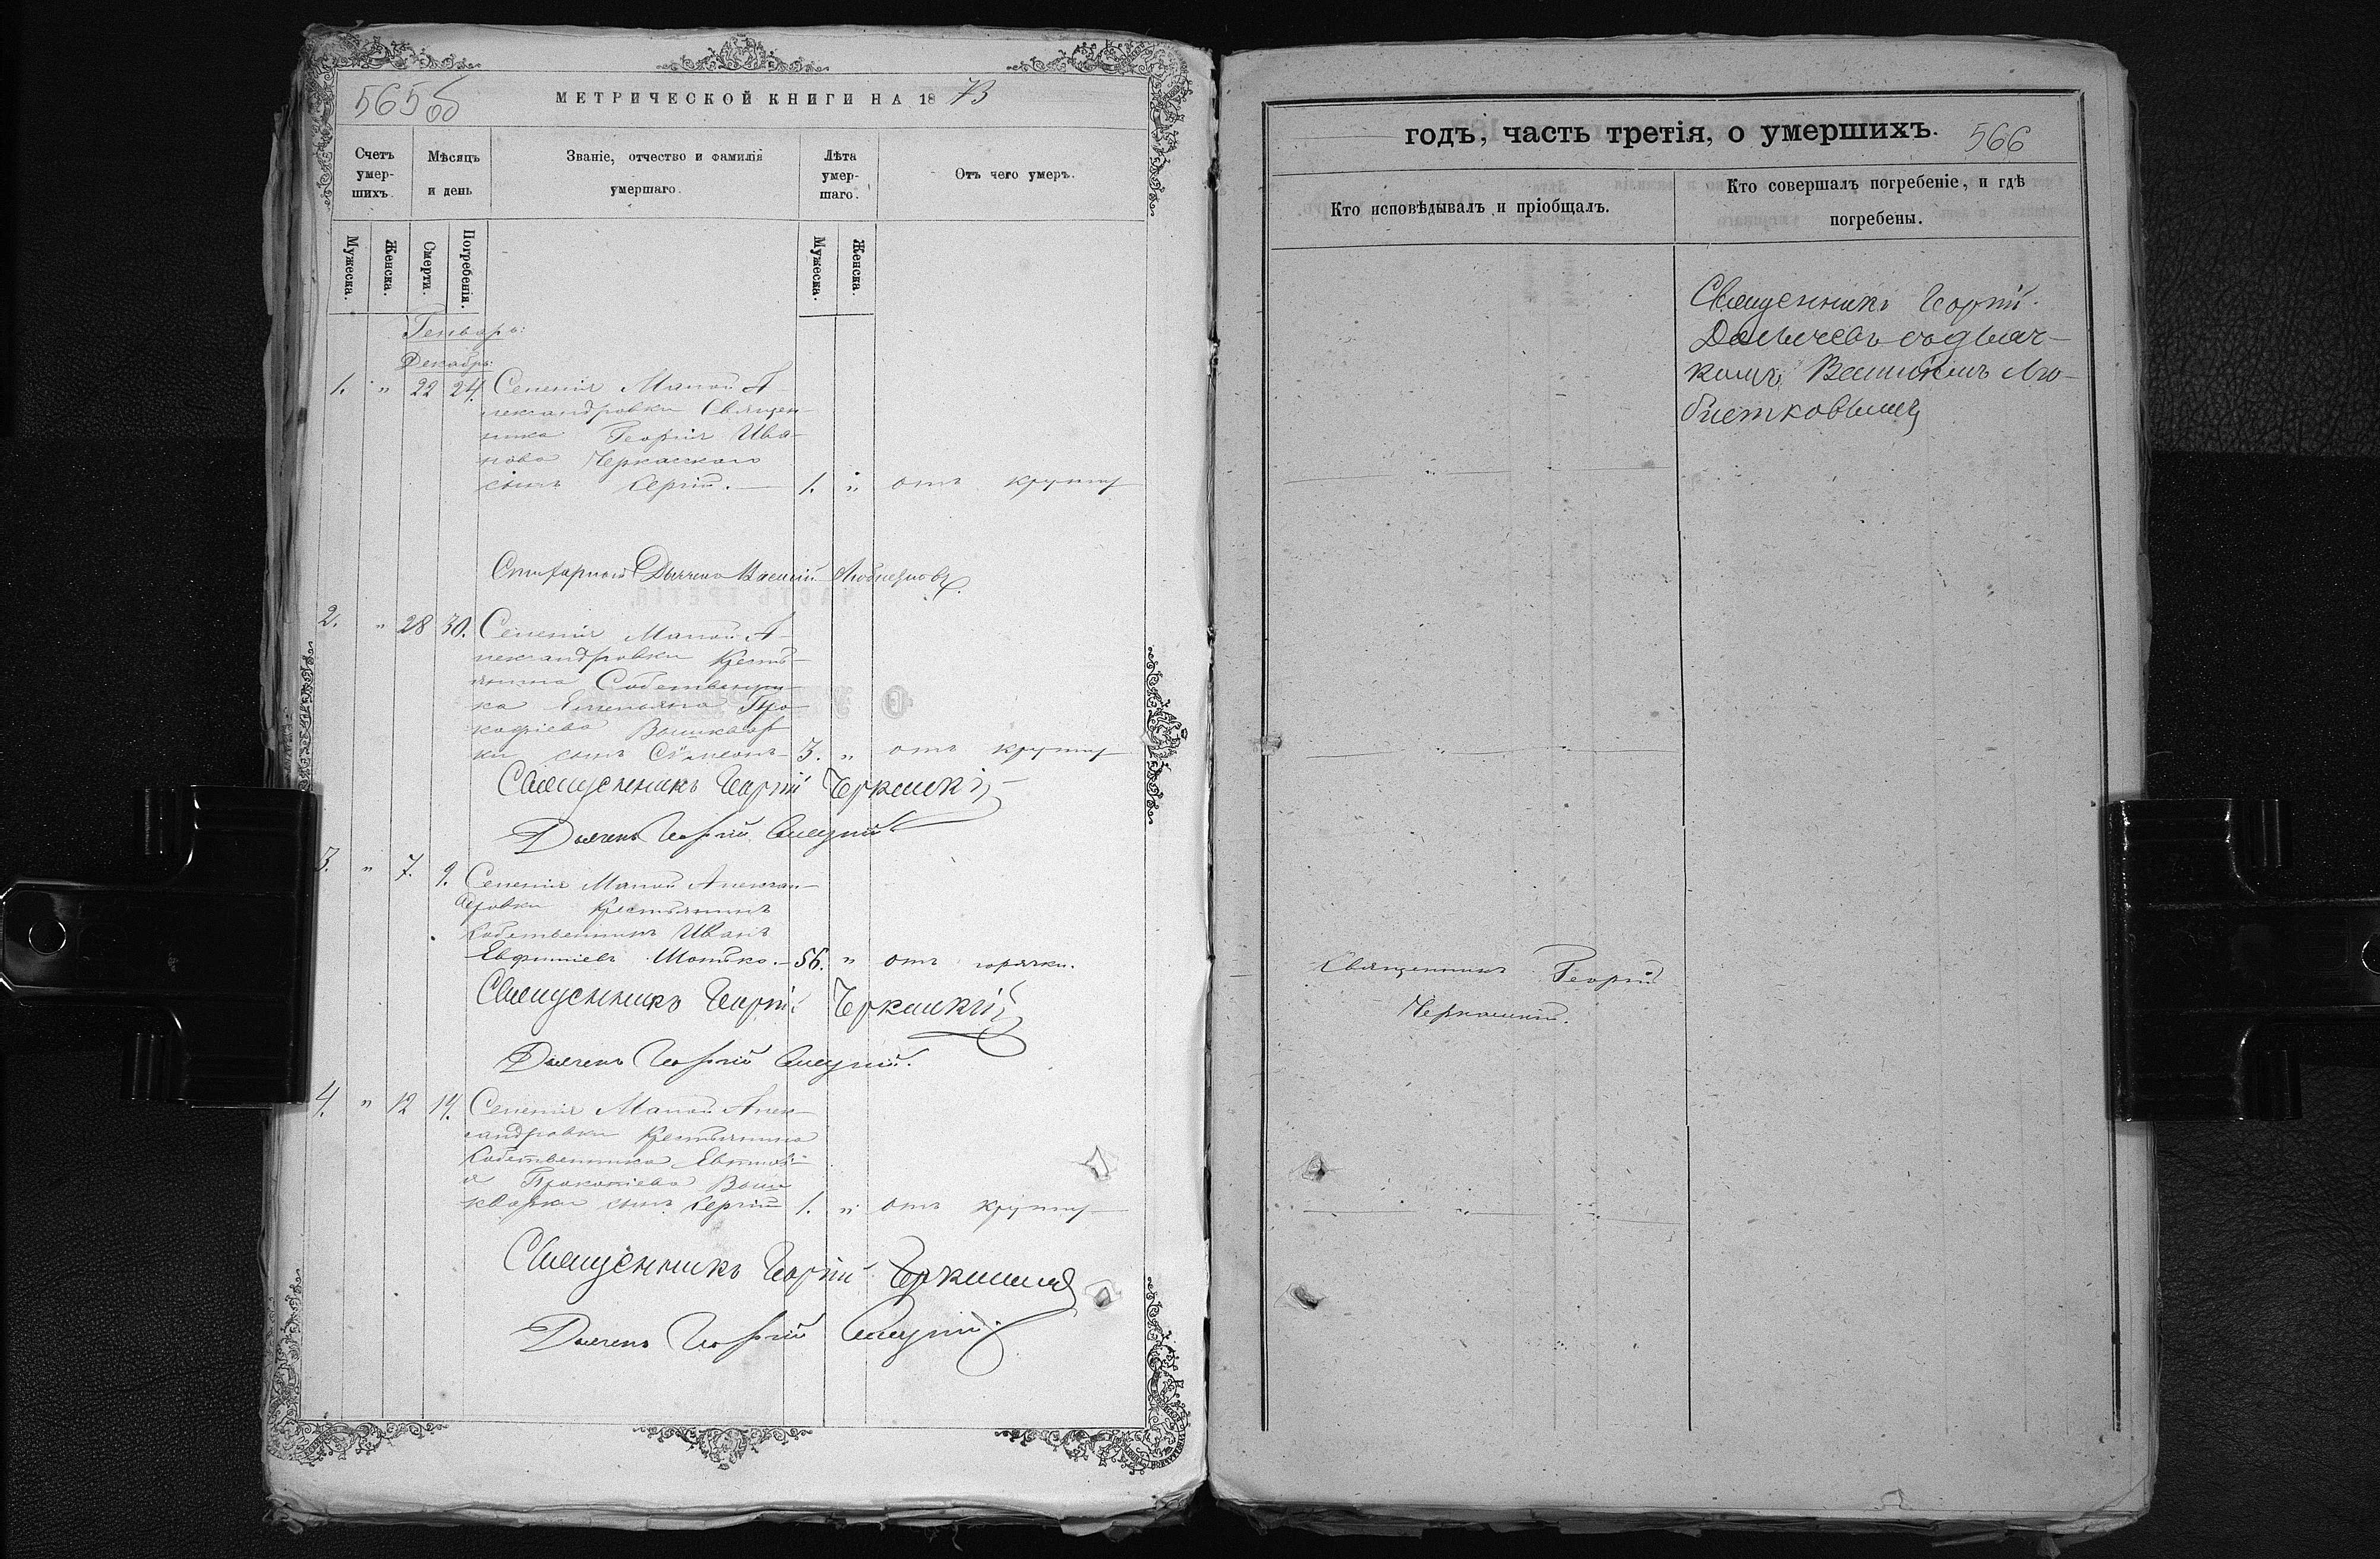 565об
МЕТРИЧЕСКОЙ КНИГИ НА 1873
Счетъ умер-шихъ.
Мѣсяцъ и день
Званіе, отчество и фамилія умершаго.
Лѣта умер-шаго.
Отъ чего умеръ.
Мужеска.
Женска.
Смерти.
Погребенія.
Мужеска.
Женска.
Генварь:
Декабрь:
1. " 22 24. Селенія Малой А-
лександровки Священ-
ника Георгія Ива-
нова Черкасскаго
сынъ Сергій. 1. " отъ крупу
Дьячекъ Василій
2. " 28 30. Селенія Малой А-
лександровки Кресть-
янина Собственни-
ка Емельяна Про-
кофіева Вышквар
ки сынъ Сѵмеонъ 3. " отъ крупу
Священникъ Георгій Черкаскій
Дьячекъ Георгій
3. " 7. 9. Селенія Малой Алексан-
дровки Крестьянинъ
Собственникъ Иванъ
Евфиміевъ 56. " отъ горячки.
Священникъ Георгій Черкаскій
Дьячекъ Георгій
4. " 12 14. Селенія Малой Алек-
сандровки Крестьянина
Собственника
Прокопіева Выш
кварки сынъ Сергій 1. " отъ крупу
Священникъ Георгій Черкаскій
Дьячекъ Георгій
годъ, часть третія, о умершихъ.
566
Кто исповѣдывалъ и пріобщалъ.
Кто совершалъ погребеніе, и гдѣ погребены.
Священникъ Георгій
съ дьяч-
комъ Василіемъ Лю-
Священникъ Георгій
Черкаскій.